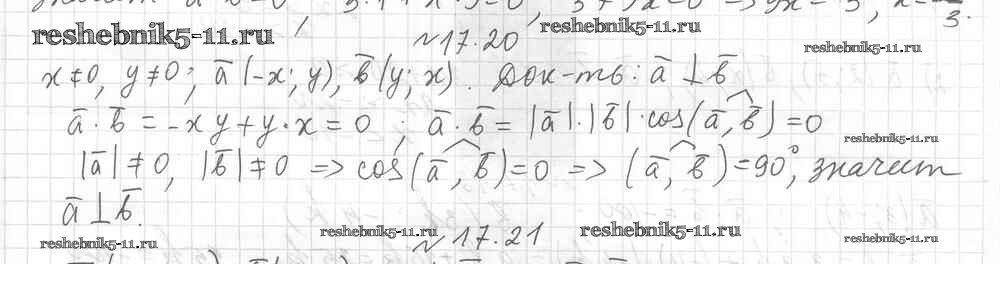 reshebnik5-11.ru
№17.20
reshebnik5-11.ru
x≠0, y≠0; a̅(-x; y), b̅(y; x). Док-ть: a̅ ⊥ b̅
a̅·b̅ = -xy+y·x=0 ; a̅·b̅ = |a̅|·|b̅|·cos(a̅,b̅)=0
reshebnik5-11.ru
|a̅|≠0, |b̅|≠0 => cos(a̅,b̅)=0 => (a̅,b̅)=90°, значит
a̅ ⊥ b̅.
reshebnik5-11.ru reshebnik5-11.ru №17.21 reshebnik5-11.ru reshebnik5-11.ru